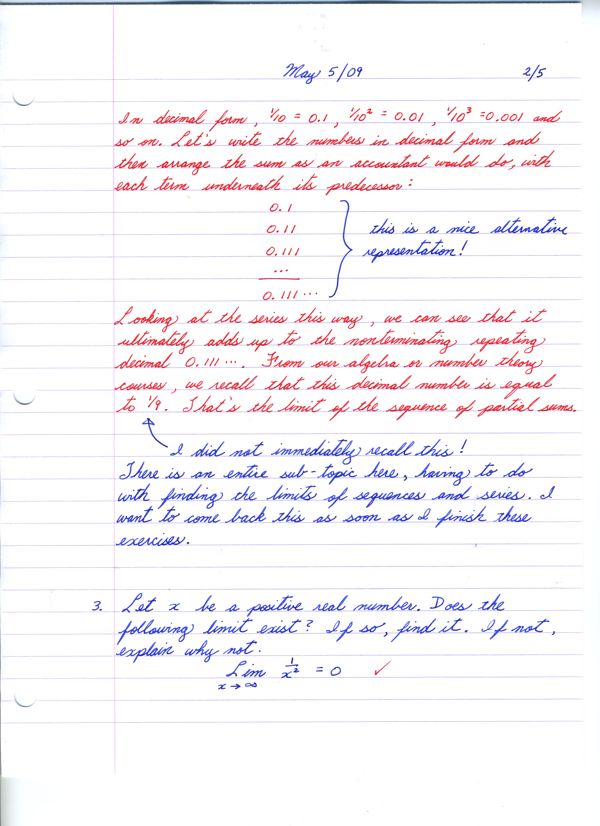 May 5/09 2/5
In decimal form, 1/10 = 0.1, 1/10² = 0.01, 1/10³ = 0.001 and
so on. Let's write the numbers in decimal form and
then arrange the sum as an accountant would do, with
each term underneath its predecessor:
0.1
0.11 this is a nice alternative
0.111 representation!
...
0.111 ...
Looking at the series this way, we can see that it
ultimately adds up to the nonterminating repeating
decimal 0.111 .... From our algebra or number theory
courses, we recall that this decimal number is equal
to 1/9. That's the limit of the sequence of partial sums.
I did not immediately recall this!
There is an entire sub-topic here, having to do
with finding the limits of sequences and series. I
want to come back this as soon as I finish these
exercises.
3. Let x be a positive real number. Does the
following limit exist? If so, find it. If not,
explain why not.
Lim 1/x² = 0 ✓
x → ∞